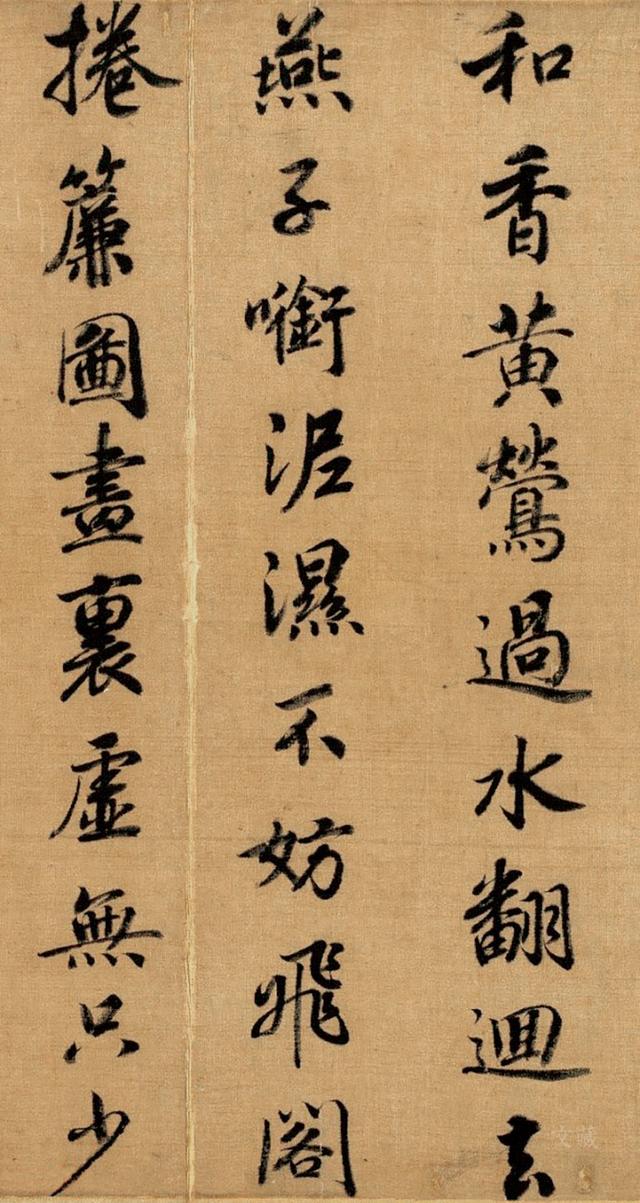 和香黄鶯過水翻迴去
燕子銜泥濕不妨飛閣
捲簾圖畫裏虛無只少
文藏